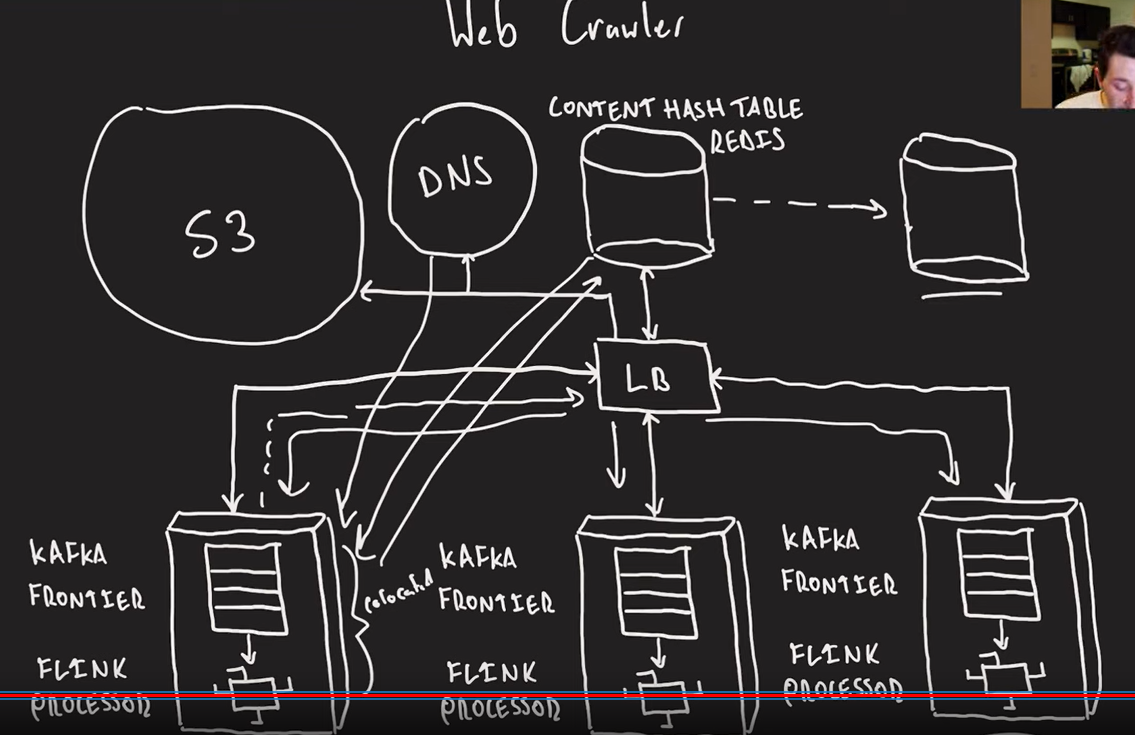 Web Crawler
CONTENT HASH TABLE
REDIS
DNS
S3
LB
KAFKA
FRONTIER
FLINK
PROCESSOR
colocated
KAFKA
FRONTIER
FLINK
PROCESSOR
KAFKA
FRONTIER
FLINK
PROCESSOR